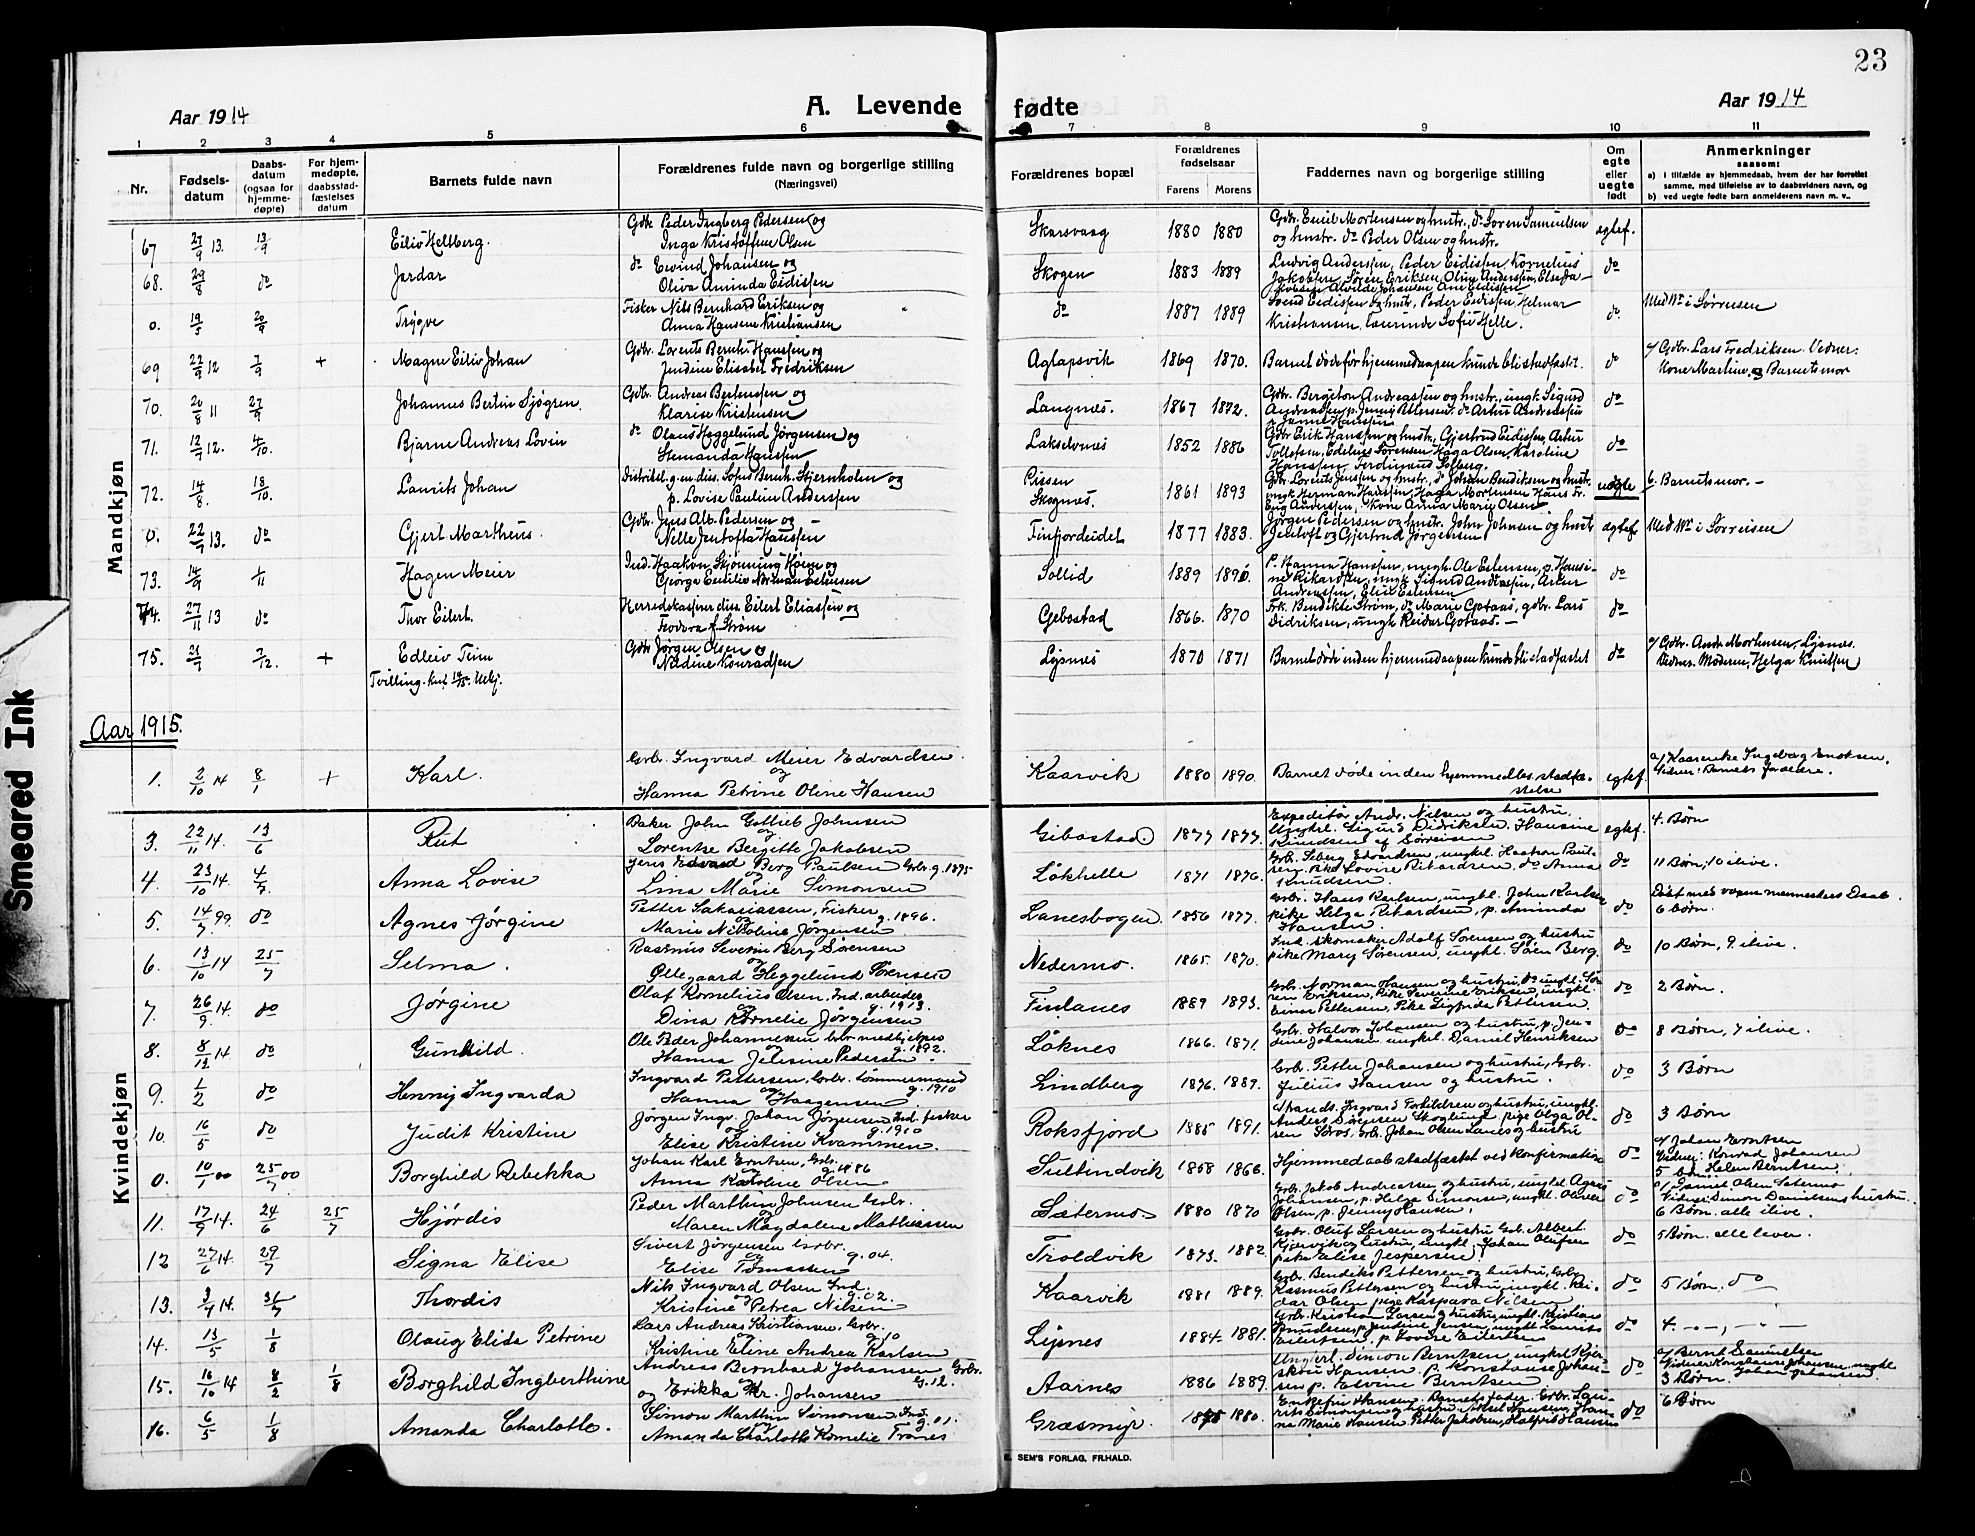 23
Aar 1914
A. Levende
fødte
Aar 1914
1 2 3 4 5 6 7 8 9 10 11
Nr.
Fødsels-
datum
Daabs-
datum
(ogsaa for
hjemme-
døpte)
For hjem-
medøpte,
daabsstad-
fæstelses
datum
Barnets fulde navn
Forældrenes fulde navn og borgerlige stilling
(Næringsvei)
Forældrenes bopæl
Forældrenes
fødselsaar
Farens Morens
Faddernes navn og borgerlige stilling
Om
egte
eller
uegte
født
Anmerkninger
saasom:
a) i tilfælde av hjemmedaab, hvem der har forrettet
samme, med tilføielse av to daabsvidners navn, og
b) ved uegte fødte barn anmelderens navn m. v..
Mandkjøn
67 27/9 13. 13/9 Eiliv Hellberg. Gdb. Peder Ingberg Pedersen og
Inga Kristoffine Olsen
Skarsvaag 1880 1880 Gdbr. Emil Mortensen og hustr., do Søren Samuelsen
og hustr. do Peder Olsen og hustr. egtef.
68. 29/8 do Jardar do Eivind Johansen og
Oliva Aminda Eidissen
Skogen 1883 1889 Ludvig Anderssen, Peder Eidissen, Kornelius
Jakobsen, Søren Eriksen, Oline Anderssen do
0. 19/5 20/9 Trygve Fisker Nils Bernhard Eriksen og
Anna Hansene Kristiansen
do 1887 1889 Svend Eidissen og hustr., Peder Eidissen, Helmar
Kristiansen, Laurinde Sofie Helle. do. Med No i Sørreisen
69 22/9 12 7/9 + Magne Eiliv Johan Gdbr. Lorents Bernh. Hanssen og
Jendine Elisabet Fredriksen
Aglapsvik 1869 1870. Barnet døde før hjemmedaapen kunde bli stadfæstet. do a/ Gdbr. Lars Fredriksen. Vidner:
Kone Martine og Barnets mor
70. 20/8 11 27/9 Johannes Bertin Sjøgren. Gdbr. Andreas Berntssen og
Klarise Kristensen
Langnes. 1867 1872. Gdbr. Bergiton Andreassen og hustr., ungk. Sigurd
Andreassen, p. Jenny Pettersen, do Artur Andreassen
p. Jamil Hanssen do
71. 12/9 12. 4/10. Bjarne Andreas Lovin do Olaus Heggelund Jørgensen og
Stemanda Hanssen
Lakselvnes 1852 1886 Gdbr. Erik Hanssen og hustr., Gjertrud Eidissen, Artur
Tollefsen, Edelius Sørensen, Haga Olsen, Karoline
Hanssen, Ferdinand Solberg. do
72. 14/8. 18/10. Laurits Johan Distriktsl. g. en. dis. Sofus Bernh. Stjernholm og
p. Lovise Pauline Anderssen
Skognes. 1861 1893 Gdbr. Lorents Jenssen og hustr., do Johan Bendiksen og hustr.
ungk. Herman Hanssen, Haga Mortensen, Hans Fr.
Eng Anderssen, Kone Anna Marie Olsen uegte b. Barnets mor. —
0. 22/9 13. do Gjert Martheus. Gdbr. Jens Alb. Pedersen og
Nelle Jentofta Hanssen
Finfjordeidet 1877 1883. Jørgen Pedersen og hustr. John Johnsen og hustr.
Jentoft og Gjertrud Jørgensen egtef. Med No i Sørreisen
73. 14/9 1/11 Hagen Meier Ind. Haakon Skjønning Høier og
Giørga Emilie Norman Estensen
Sollid 1889 1890. P. Hanna Hanssen, ungk. Ole Estensen, p. Hansi-
ne Rikardsen, ungk. Sigurd Andreassen, Artur
Andreassen, Elise Estensen do
74. 27/11 13 do Thor Eilert. Herredskasserer dies. Eilert Eliassen og
Teodora f. Strøm
Gebostad 1866. 1870 Frk. Bendikte Strøm, do Marie Gotaas, gdbr. Lars
Didriksen, ungk. Reidar Gotaas. — do
75. 21/9 2/12. + Edleiv Tim Gdbr. Jørgen Olsen og
Nildine Konradsen
Lysnes 1870 1871 Barnet døde inden hjemmedaapen kunde bli stadfæstet do a/ Gdbr. Andr. Mortensen, Lysnes.
Vidner. Moderen, Helga Knutsen
Tvilling.
Aar 1915.
1. 2/10 14 8/1 + Karl. Grbr. Ingvard Meier Edvardsen
og
Hanna Petrine Oline Hansen
Kaarvik 1880 1890. Barnet døde inden hjemmedøbs. stadfæ-
stelse egtef. a/ Kaarenke Ingeborg Enoksen.
Vidner: Barnets forældre.
Kvindekjøn
3. 22/11 14. 13/6 Rut Baker John Gottlieb Johnsen
og
Lorentze Bergitte Jakobsen
Gibostad 1877 1877. Expeditør Andr. Nilsen og hustru
Ungkrl. Sigurd Didriksen. Hansine
Knudsens af Sørreisen egtef. 4. Børn
4. 23/10 14. 4/7. Anna Lovise Jens Edvard Berg Paulsen Grbr. g. 1895
og
Lina Marie Simonsen
Løkhelle 1871 1876. Grbr. Seberg Edvardsen, ungkl. Haakon Paul-
sen, Pike Lovise Rikardsen, do Anna
Knudsen. do 11 Børn, 10 ilive.
5. 14/7 99 do Agnes Jørgine Petter Sakariassen, Fisker
og g. 1896.
Marie Nikoline Jørgensen
Lanesbogen. 1856 1877. Grbr. Hans Karlsen, ungkl. John Karlsen
pike Helga Rikardsen, p. Aminda
Hansen. do Døbt med voxen menneskers Daab.
6 børn.
6. 13/10 14 25/7 Selma. Rasmus Severin Berg Sørensen
og
Øllegaard Heggelund Sørensen
Nedermo. 1865 1870. Ind. skomaker Adolf Sørensen og hustru
pike Mary Sørensen, ungkl. Søren Berg. do 10 Børn, 9 ilive.
7. 26/9. 14. do Jørgine Olaf Kornelius Olsen, Ind. arbeider
og g. 1913.
Dina Kornelie Jørgensen
Finlanes 1889 1893. Grbr. Norman Hansen og hustru, do ungkl. Sø-
ren Eriksen, Pike Severine Eriksen, ungkl.
Einar Pettersen, Pike Sigfrida Pettersen. do 2 Børn.
8. 8/12 14 do Gunhild. Ole Peder Johannessen Grbr. medhjelper
og g. 1892.
Hanna Jelisine Pedersen
Løknes 1866. 1871. Grbr. Halvor Johansen og hustru, p. Jen-
sine Johansen ungkrl. Daniel Henriksen do 8 Børn, 7 ilive.
9. 1/2 do Henny Ingvarda Ingvard Pettersen, Grbr. tømmermand
og g. 1910
Hanna Haagensen
Lindberg 1876. 1889. Grbr. Petter Johansen og hustru, Grbr.
Julius Hansen og hustru. do 3 Børn
10. 16/5 do Judit Kristine Jørgen Ingv. Johan Jørgensen Ind. fisker
og g. 1910
Elise Kristine Kvammen.
Roksfjord 1885 1891. Strands. Ingvard Torkildsen og hustru, ungkl.
Anders Sørensen Skoglund, pige Olga Ol-
sen Søros, Grbr. Johan Olsen Lanes og hustru do 3 Børn
0. 10/1 00 25/7 00 Borghild Rebekka Johan Karl Erntsen, Grbr.
og g. 1886
Anna Karoline Olsen
Sultindvik 1858 1866. Hjemmedaab stadfæstet ved konfirmation do a/ Johan Erntsen
Vidner: Konrad Johansen
Helen Berntsen.
5 børn.
11. 17/9 14. 24/6 25/7 Hjørdis Peder Marthin Johnsen Grbr.
og
Maren Magdalene Mathiassen
Sætermo 1880 1870 Grbr. Jakob Andreassen og hustru, ungkl. Agnes
Johansen, p. Helga Simonsen, ungkl. Oliver
Olsen, p. Jenny Hansen. do a/ Daniel Olsen Sætermo
Vidner: Simon Danielsens hustru.
6 Børn. alle ilive.
12 27/6 14 29/7 Signa Elise Sivert Jørgensen Grbr.
og g. 04.
Elise Tomassen
Troldvik 1873. 1882. Grbr. Oluf Larsen og hustru Grbr. Albert
Kjærvik og hustru, ungkl. Johan Olufsen
pike Elise Jespersen do 5 Børn. alle lever.
13. 3/9 14. 31/7 Thordis Nils Ingvard Olsen Ind.
og g. 02.
Kristine Petrea Nilsen
Kaarvik 1881 1889. Grbr. Bendiks Pettersen og hustru, Grbr.
Rasmus Pettersen og hustru, ungkl. Rei-
dar Olsen pige Kaspara Nilsen do 5 Børn. do
14. 13/5 1/8 Olaug Elida Petrine Lars Andreas Kristiansen, Grbr.
og g. 10
Kristine Eline Andrea Karlsen
Lysnes 1884. 1881. Grbr. Kristian Larsen og hustru, ungkl. Kristian
Knudsen, p. Jendine Jensen, ungkl. Laurits
Eilertsen, p. Lovise Eilertsen do 4. — - — , — - —
15. 16/10 14 8/2 1/8 Borghild Ingberthine Andreas Bernhard Johansen Grbr.
G. 12.
og Erikka Kr. Johansen
Aarnes 1886 1889. Ungkrl. Simon Berntsen, ungkrl. Kjer-
skov Hansen, p. Konstanse Johan-
sen p. Elvine Berntsen do a/ Bernt Samuelsen
Vidner Konstanse Johansen, ungkl
Johan Johansen.
3 Børn.
16. 6/5 1/8 Amanda Charlotte. Simon Marthin Simonsen Ind.
og g. 01.
Amanda Charlotte Kornelie Tranes
Græsmyr. 1875 1880. Enkefru Hansen. Barnets fader. Grbr. Lau-
rits Simonsen og hustru. Aksel Hansen, Han-
na Marie Hansen, Petter Jakobsen, Halfrid Hansen do 6 Børn
E. SEM'S FORLAG, FR.HALD.
Smeared Ink